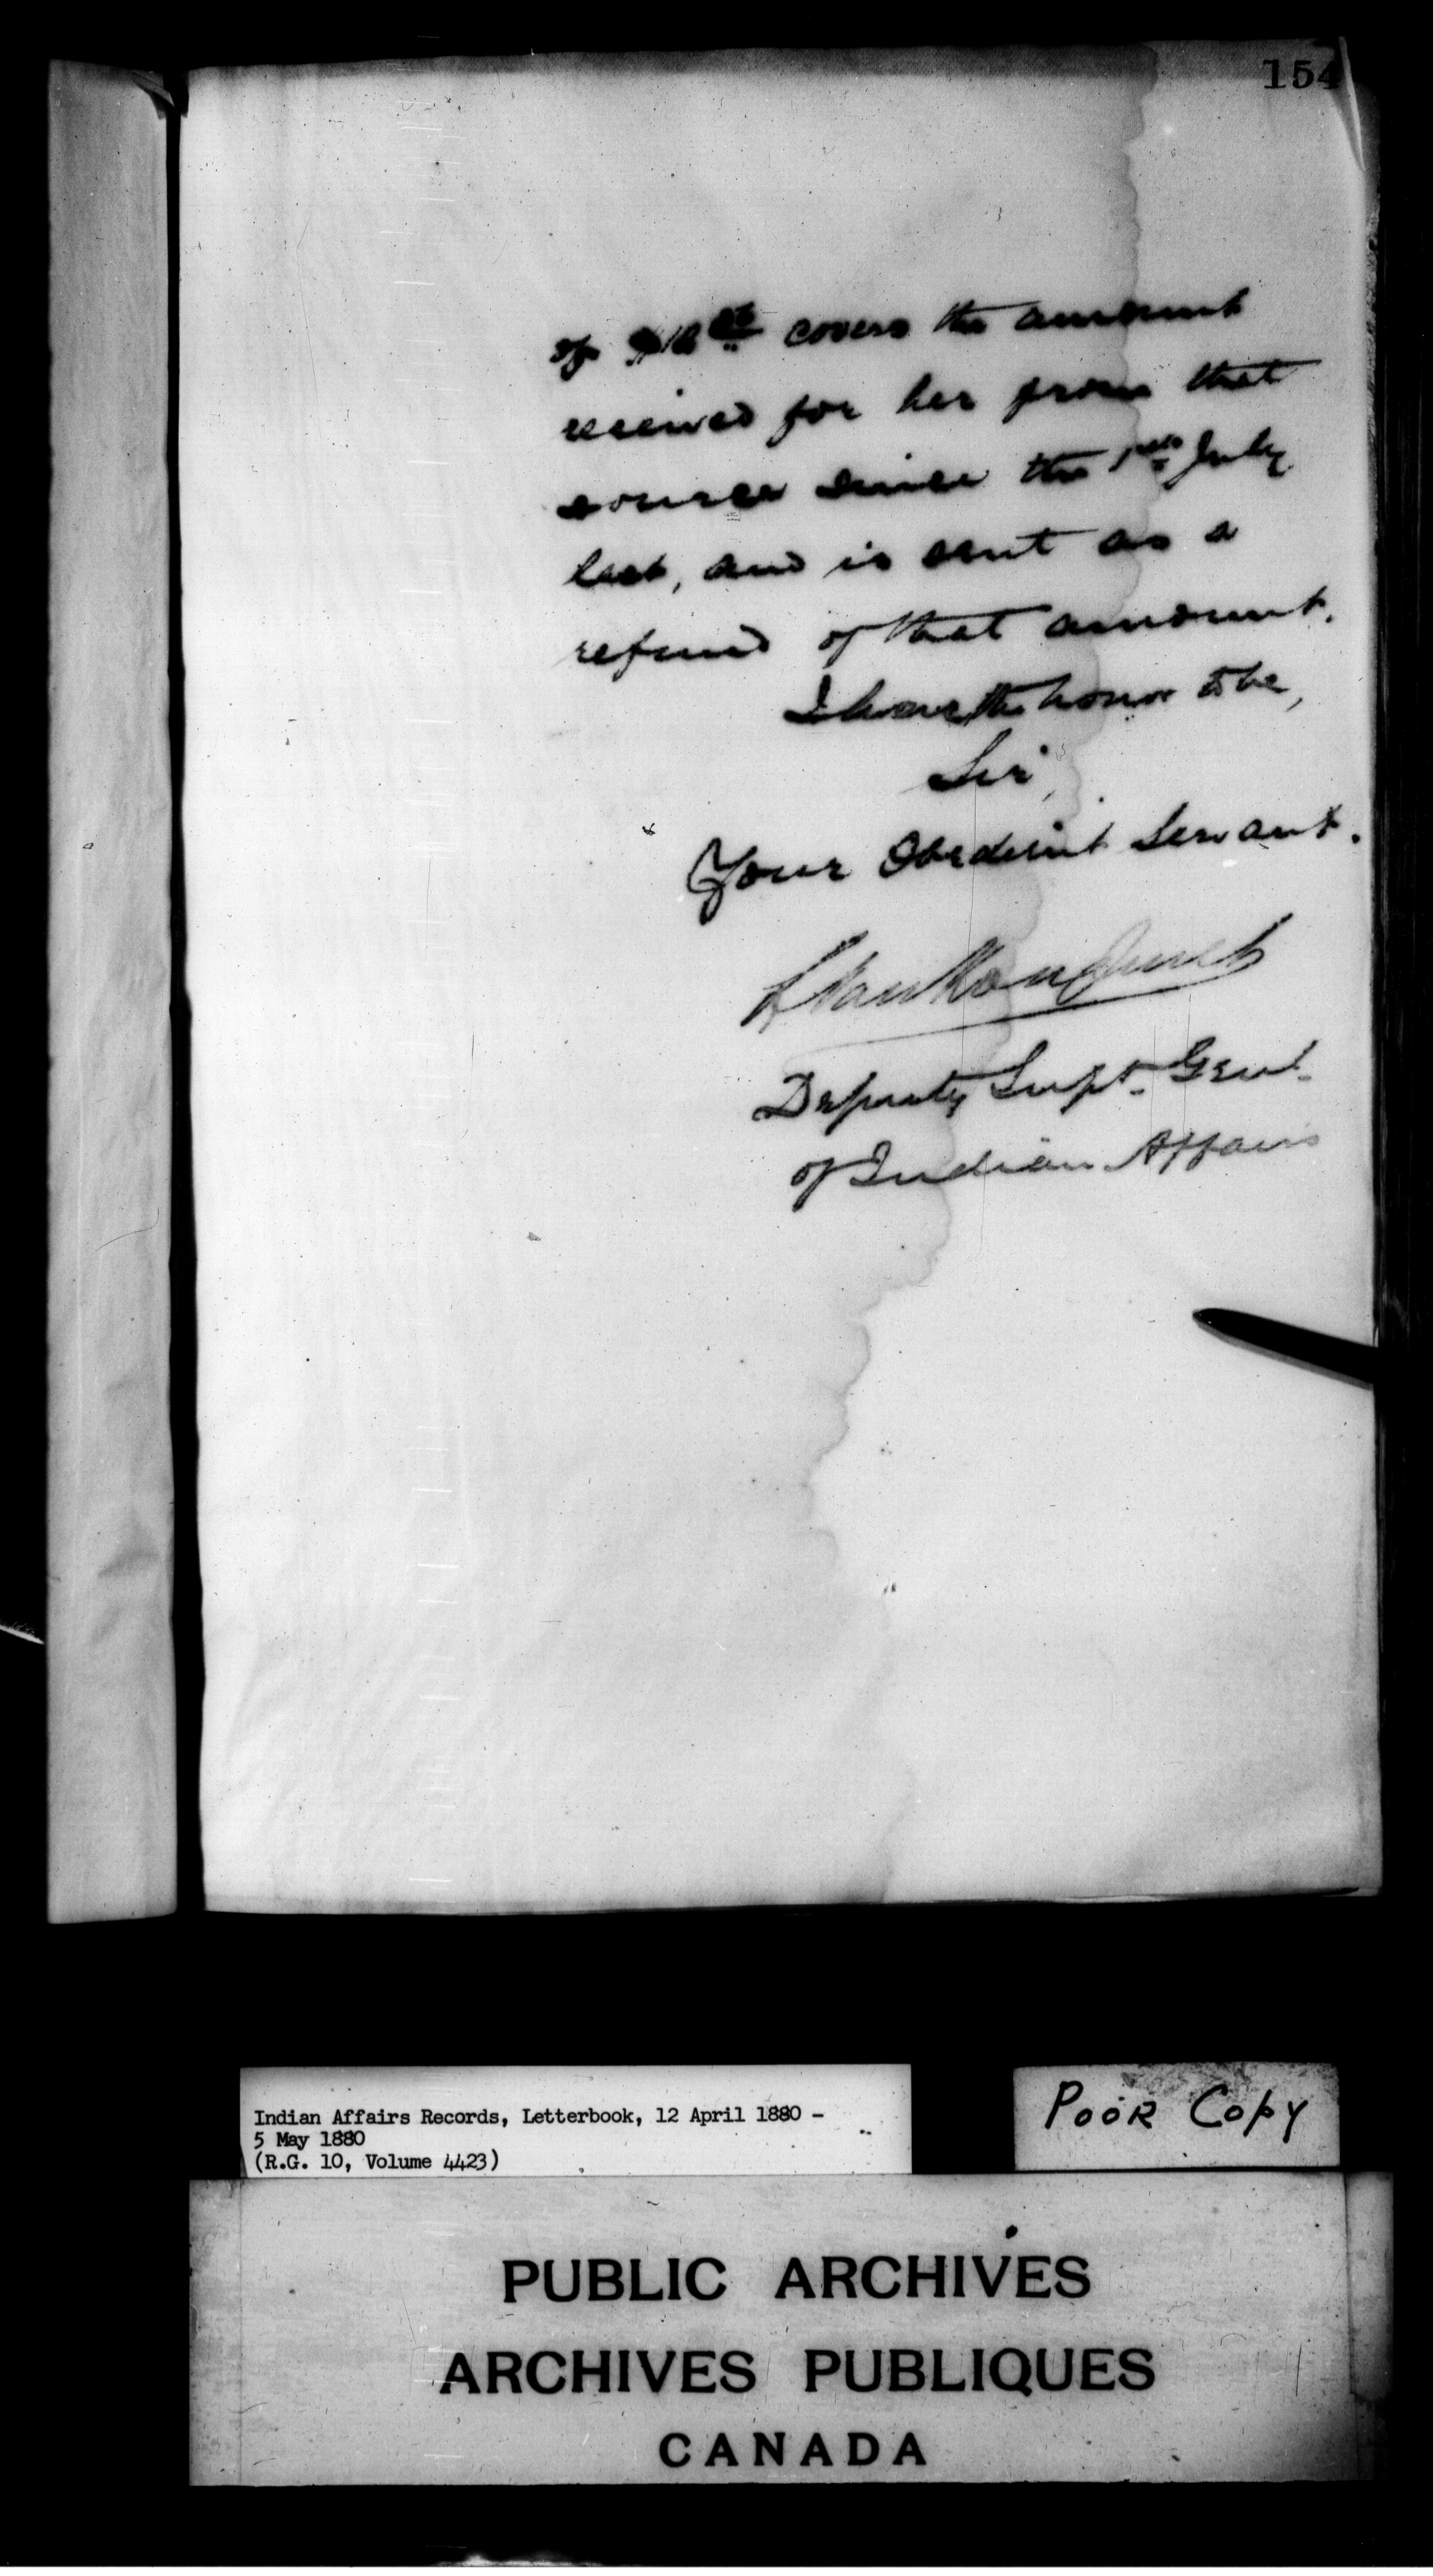 154
of covers the amount
received for her from that
source since the 1st July
last, and is sent as a
refund of that amount.
I have the honor to be,
Sir,
Your Obedient Servant.
L VanKoughnet
Deputy Supt. Genl.
of Indian Affairs
Indian Affairs Records, Letterbook, 12 April 1880 -
5 May 1880
(R.G. 10, Volume 4423)
POOR COPY
PUBLIC ARCHIVES
ARCHIVES PUBLIQUES
CANADA